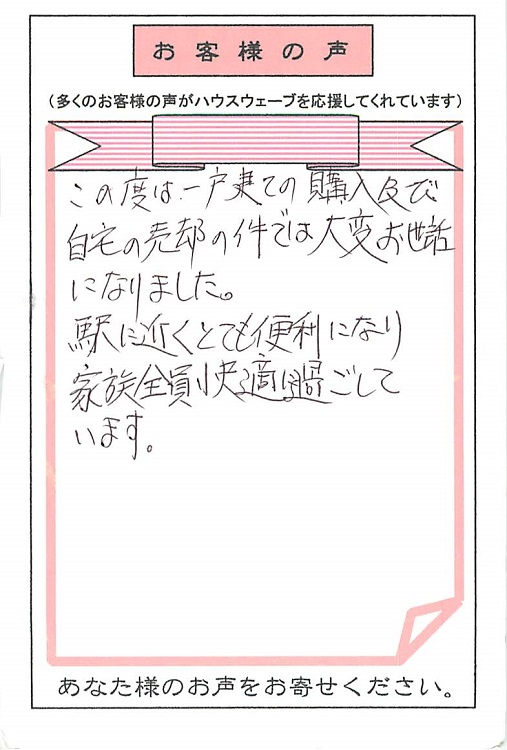 お客様の声
（多くのお客様の声がハウスウェーブを応援してくれています）
この度は一戸建ての購入及び
自宅の売却の件では大変お世話
になりました。
駅に近くとても便利になり
家族全員快適に過ごして
います。
あなた様のお声をお寄せください。